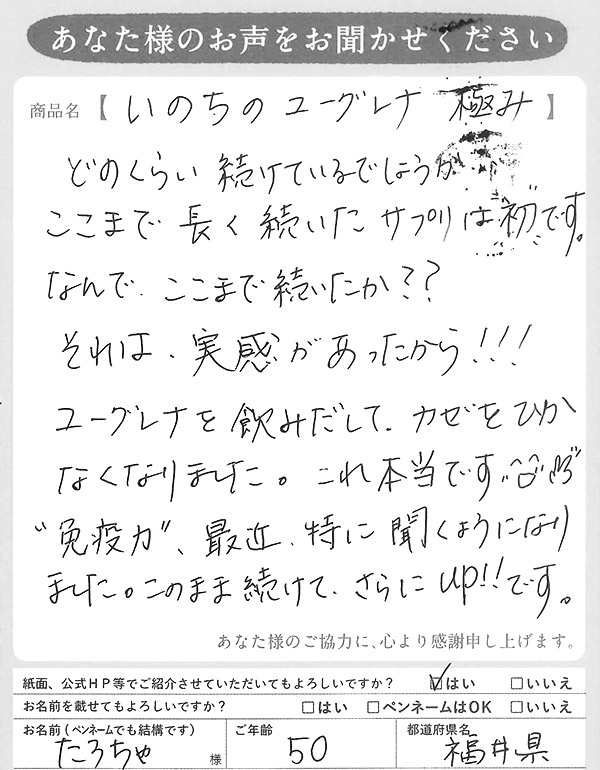 あなた様のお声をお聞かせください
商品名【 いのちのユーグレナ 極み 】
どのくらい続けているでしょうか
ここまで長く続いたサプリは"初"です。
なんで、ここまで続いたか??
それは、実感があったから!!!
ユーグレナを飲みだして、カゼをひか
なくなりました。これ本当です
"免疫力"、最近、特に聞くようになり
ました。このまま続けて、さらにup!!です。
あなた様のご協力に、心より感謝申し上げます。
紙面、公式HP等でご紹介させていただいてもよろしいですか? ☑はい □いいえ
お名前を載せてもよろしいですか? □はい □ペンネームはOK □いいえ
お名前(ペンネームでも結構です) ご年齢 都道府県名
たろちゃ 様 50 福井県